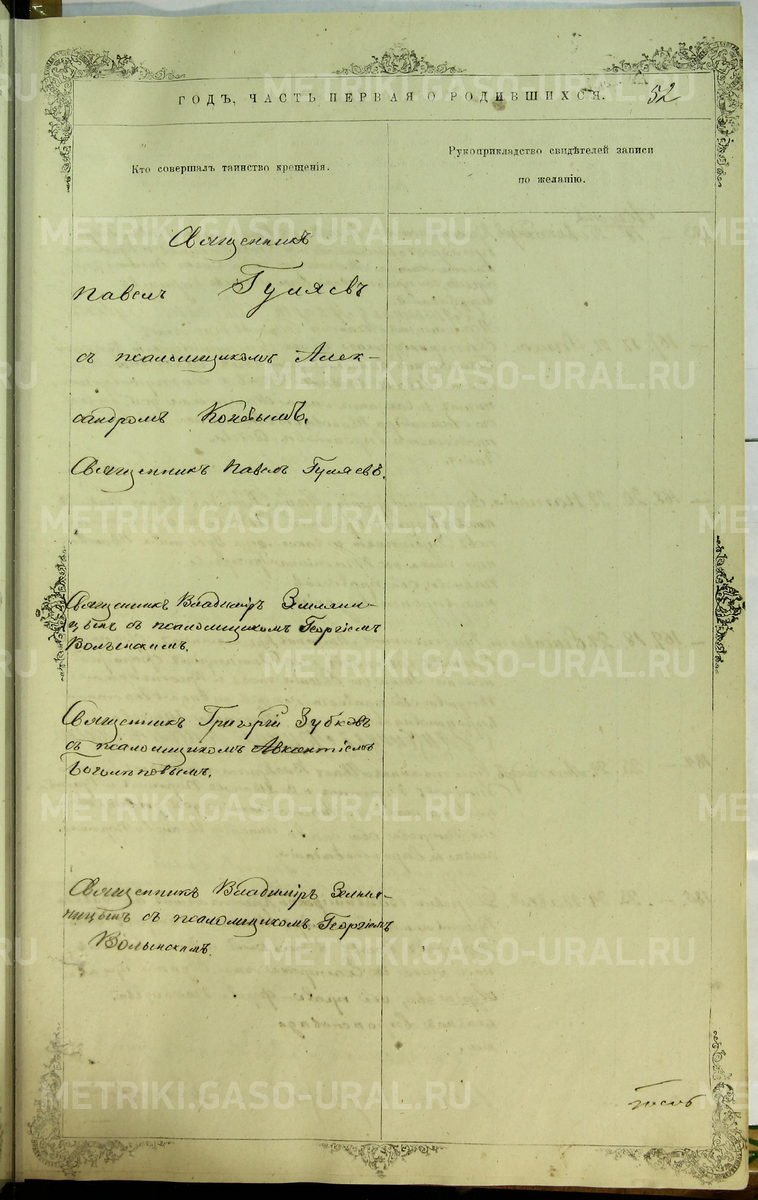 ГОДЪ, ЧАСТЬ ПЕРВАЯ О РОДИВШИХСЯ.
52
Кто совершалъ таинство крещенія.
Рукоприкладство свидѣтелей записи
по желанію.
Священникъ
Павелъ Гуляевъ
съ псаломщикомъ Алек-
сандромъ
Священникъ Павелъ Гуляевъ.
Священникъ Владиміръ Земляни-
цынъ съ псаломщикомъ Георгіемъ
Волынскимъ.
Священникъ Григорій Зубковъ
съ псаломщикомъ Авксентіемъ
Священникъ Владиміръ Земля-
ницынъ съ псаломщикомъ Георгіемъ
Волынскимъ.
METRIKI.GASO-URAL.RU